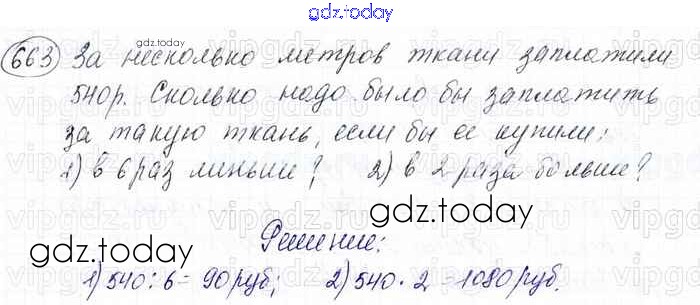 gdz.today
663 За несколько метров ткани заплатили
gdz.today
540р. Сколько надо было бы заплатить
за такую ткань, если бы её купили:
1) в 6 раз меньше? 2) в 2 раза больше?
gdz.today
Решение:
gdz.today
1) 540:6=90руб; 2) 540·2=1080руб.